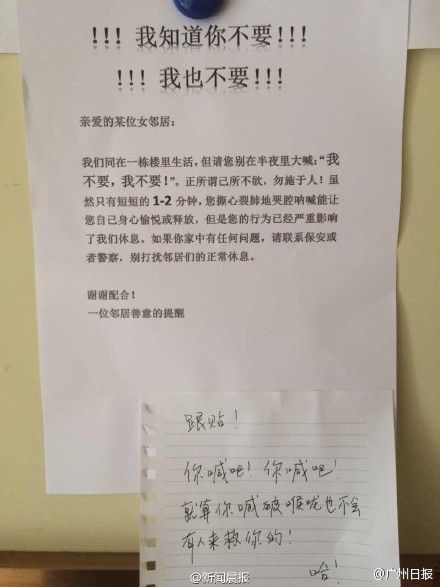 !!! 我知道你不要!!!
!!! 我也不要!!!
亲爱的某位女邻居:
我们同在一栋楼里生活,但请您别在半夜里大喊:“我
不要,我不要!”。正所谓己所不欲,勿施于人!虽
然只有短短的1-2 分钟,您撕心裂肺地哭腔呐喊能让
您自己身心愉悦或释放,但是您的行为已经严重影响
了我们休息。如果你家中有任何问题,请联系保安或
者警察,别打扰邻居们的正常休息。
谢谢配合!
一位邻居善意的提醒
跟贴!
你喊吧!你喊吧!
就算你喊破喉咙也不会
有人来救你的!
哈!
@新闻晨报
@广州日报